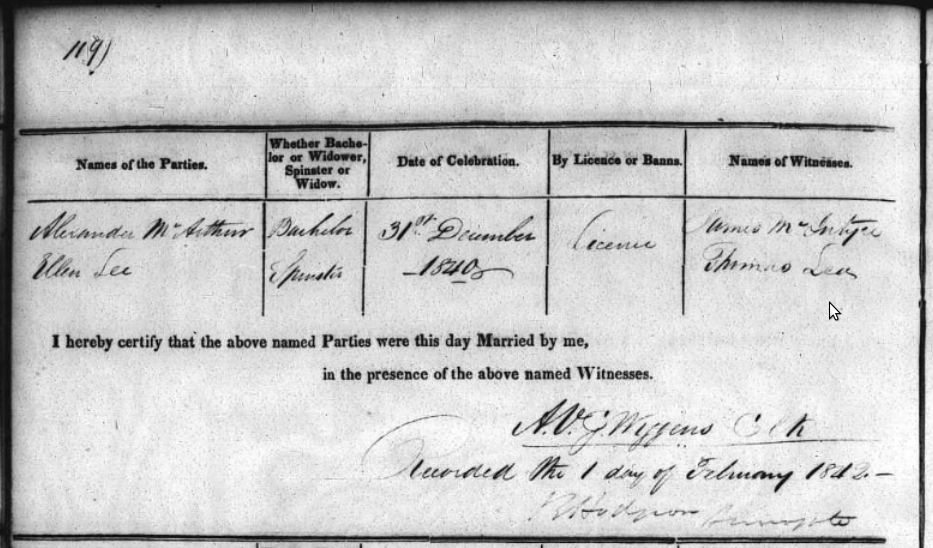 119)
Names of the Parties. Whether Bache- lor or Widower, Spinster or Widow. Date of Celebration. By Licence or Banns. Names of Witnesses.
Alexander McArthur Bachelor 31st December Licence James McIntyre
Ellen Lee Spinster 1840 Thomas Lea
I hereby certify that the above named Parties were this day Married by me,
in the presence of the above named Witnesses.
A.V.G. Wiggens Clk
Recorded the 1 day of February 1842.—
Hodgson